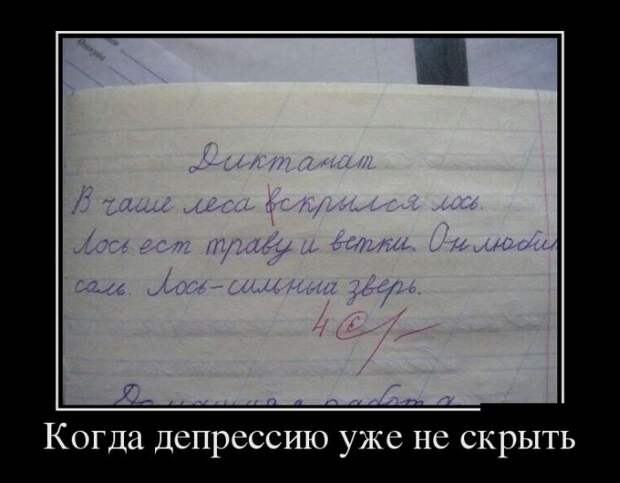 Диктанат
В чаше леса вскрылся лось.
Лось ест траву и ветки. Он любит
соль. Лось-сильный зверь.
4
Домашняя работа
Когда депрессию уже не скрыть